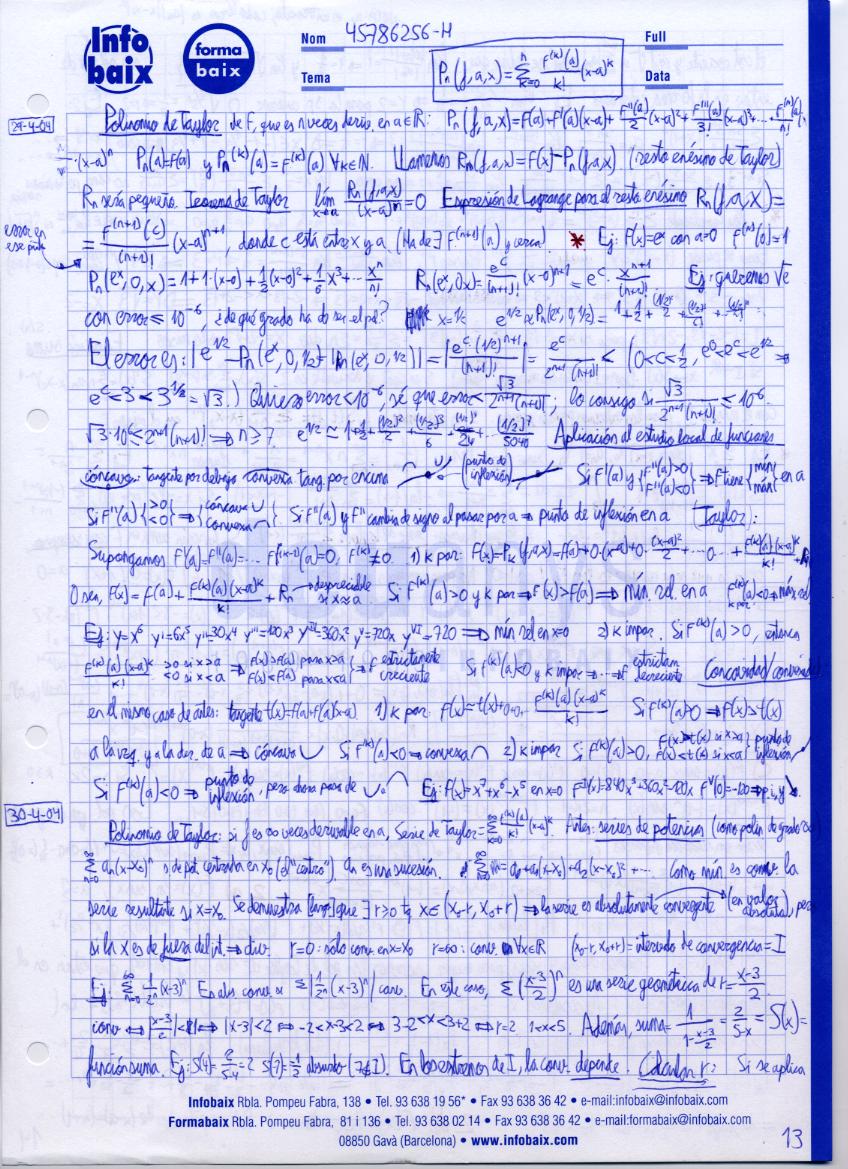 Info baix
forma baix
Nom 45786256-H
Full
Tema
Data
Pₙ(f,a,x) = Σ_{k=0}^{n} f^{(k)}(a)/k! (x-a)^k
29-4-04
Polinomio de Taylor de F, que es n veces deriv. en a∈ℝ: Pₙ(f,a,x)=f(a)+f'(a)(x-a)+ f''(a)/2 (x-a)²+ f'''(a)/3! (x-a)³+...+ f^{(n)}(a)/n!
·(x-a)ⁿ Pₙ(a)=f(a) y Pₙ^{(k)}(a)=F^{(k)}(a) ∀k∈ℕ. Llamemos Rₙ(f,a,x)=F(x)-Pₙ(f,a,x) (resto enésimo de Taylor)
Rₙ será pequeño. Teorema de Taylor lím_{x→a} Rₙ(f,a,x)/(x-a)ⁿ=0 Expresión de Lagrange para el resto enésimo Rₙ(f,a,x)=
error en ese pto
= F^{(n+1)}(c)/(n+1)! (x-a)^{n+1}, donde c está entre x y a (Ha de ∃ F^{(n+1)}(a) y cerca) * Ej: F(x)=eˣ con a=0 f^{(n)}(0)=1
Pₙ(eˣ,0,x)=1+1·(x-0)+½(x-0)²+1/6 x³+... xⁿ/n! Rₙ(eˣ,0,x)= e^c/(n+1)! (x-0)^{n+1} = e^c · x^{n+1}/(n+1)! Ej: queremos √e
con error ≤ 10⁻⁶, ¿de qué grado ha de ser el pol? x=½ e^{1/2}≈Pₙ(eˣ,0,1/2)=1+½+ (1/2)²/2 + (1/2)³/6!
El error es: |e^{1/2}-Pₙ(eˣ,0,½)|=|Rₙ(eˣ,0,½)|=|e^c·(½)^{n+1}/(n+1)!|= e^c/(2^{n+1}(n+1)!) < (0<c<½, e⁰<e^c<e^{1/2} ⇒
e^c<3<3^{1/2}=√3.) Quiero error<10⁻⁶, sé que error< √3/(2^{n+1}(n+1)!); lo consigo si √3/(2^{n+1}(n+1)!) ≤ 10⁻⁶
√3·10⁶≤2^{n+1}(n+1)! ⇒ n≥7 e^{1/2}≃1+½+ (1/2)²/2 + (1/2)³/6 + (1/2)⁴/24 +... (1/2)⁷/5040 Aplicación al estudio local de funciones
cóncava: tangente por debajo convexa tang. por encima (punto de inflexión) Si F'(a) y {F''(a)>0 F''(a)<0} ⇒ F tiene {mín máx} en a
Si F''(a) {>0 <0} ⇒ {cóncava ∪ convexa ∩} Si F''(a) y F'' cambia de signo al pasar por a ⇒ punto de inflexión en a (Taylor):
Supongamos F'(a)=F''(a)=... F^{(k-1)}(a)=0, F^{(k)}≠0. 1) k par: F(x)=P_k(f,a,x)=f(a)+0·(x-a)+0·(x-a)²/2+...0...+ F^{(k)}(a)(x-a)^k/k! +Rₙ
O sea, F(x)=F(a)+ F^{(k)}(a)(x-a)^k/k! + Rₙ → despreciable si x≈a Si F^{(k)}(a)>0 y k par ⇒ F(x)>F(a) ⇒ mín. rel. en a F^{(k)}(a)<0 k par: ⇒ máx rel
Ej: y=x⁶ y'=6x⁵ y''=30x⁴ y'''=120x³ y^{IV}=360x² y^V=720x y^{VI}=720 ⇒ mín rel en x=0 2) k impar. Si F^{(k)}(a)>0, entonces
F^{(k)}(a)(x-a)^k/k! >0 si x>a <0 si x<a ⇒ F(x)>F(a) para x>a F(x)<F(a) para x<a } ⇒ F estrictamente creciente Si F^{(k)}(a)<0 y k impar ⇒ ... f estrictam. decreciente Concavidad/convexidad
en el mismo caso de antes: tangente t(x)=F(a)+F'(a)(x-a). 1) k par: F(x)≈t(x)+0+0... F^{(k)}(a)(x-a)^k/k! Si F^{(k)}(a)>0 ⇒ F(x)>t(x)
a la izq. y a la der. de a ⇒ cóncava ∪ Si F^{(k)}(a)<0 ⇒ convexa ∩ 2) k impar Si F^{(k)}(a)>0, F(x)>t(x) si x>a F(x)<t(x) si x<a } punto de inflexión
Si F^{(k)}(a)<0 ⇒ punto de inflexión, pero ahora pasa de ∪ a ∩ Ej: F(x)=x⁷+x⁶-x⁵ en x=0 F^{IV}(x)=840x³+360x²-120x F^V(0)=-120 ⇒ p.i. y
30-4-04
Polinomio de Taylor: si f es ∞ veces derivable en a, Serie de Taylor= Σ_{k=0}^{∞} f^{(k)}(a)/k! (x-a)^k. Antes: series de potencias (como polin. de grado ∞)
Σ_{n=0}^{∞} aₙ(x-x₀)ⁿ s. de pot. centrada en x₀ (el "centro") aₙ es una sucesión. Σ_{n=0}^{∞} = a₀+a₁(x-x₀)+a₂(x-x₀)²+... Como mín. es conv. la
serie resultante si x=x₀. Se demuestra [largo] que ∃ r≥0 tq x∈(x₀-r, x₀+r) ⇒ la serie es absolutamente convergente (en valor absoluto), pero
si la x es de fuera del int. ⇒ div. r=0: solo conv. en x=x₀ r=∞: conv. ∀x∈ℝ (x₀-r, x₀+r)=intervalo de convergencia=I
Ej: Σ_{n=0}^{∞} 1/2ⁿ (x-3)ⁿ En abs. conv. si Σ|1/2ⁿ (x-3)ⁿ| conv. En este caso, Σ((x-3)/2)ⁿ es una serie geométrica de r=(x-3)/2.
conv ⇔ |(x-3)/2|<1 ⇔ |x-3|<2 ⇔ -2<x-3<2 ⇔ 3-2<x<3+2 ⇔ r=2 1<x<5. Además, suma= 1/(1-(x-3)/2) = 2/(5-x) = S(x)=
función suma. Ej: S(4)= 2/(5-4) =2 S(7)=-½ absurdo (7∉I). En los extremos de I, la conv. depende. Calcular r: Si se aplica
Infobaix Rbla. Pompeu Fabra, 138 • Tel. 93 638 19 56* • Fax 93 638 36 42 • e-mail:infobaix@infobaix.com
Formabaix Rbla. Pompeu Fabra, 81 i 136 • Tel. 93 638 02 14 • Fax 93 638 36 42 • e-mail:formabaix@infobaix.com
08850 Gavà (Barcelona) • www.infobaix.com
13